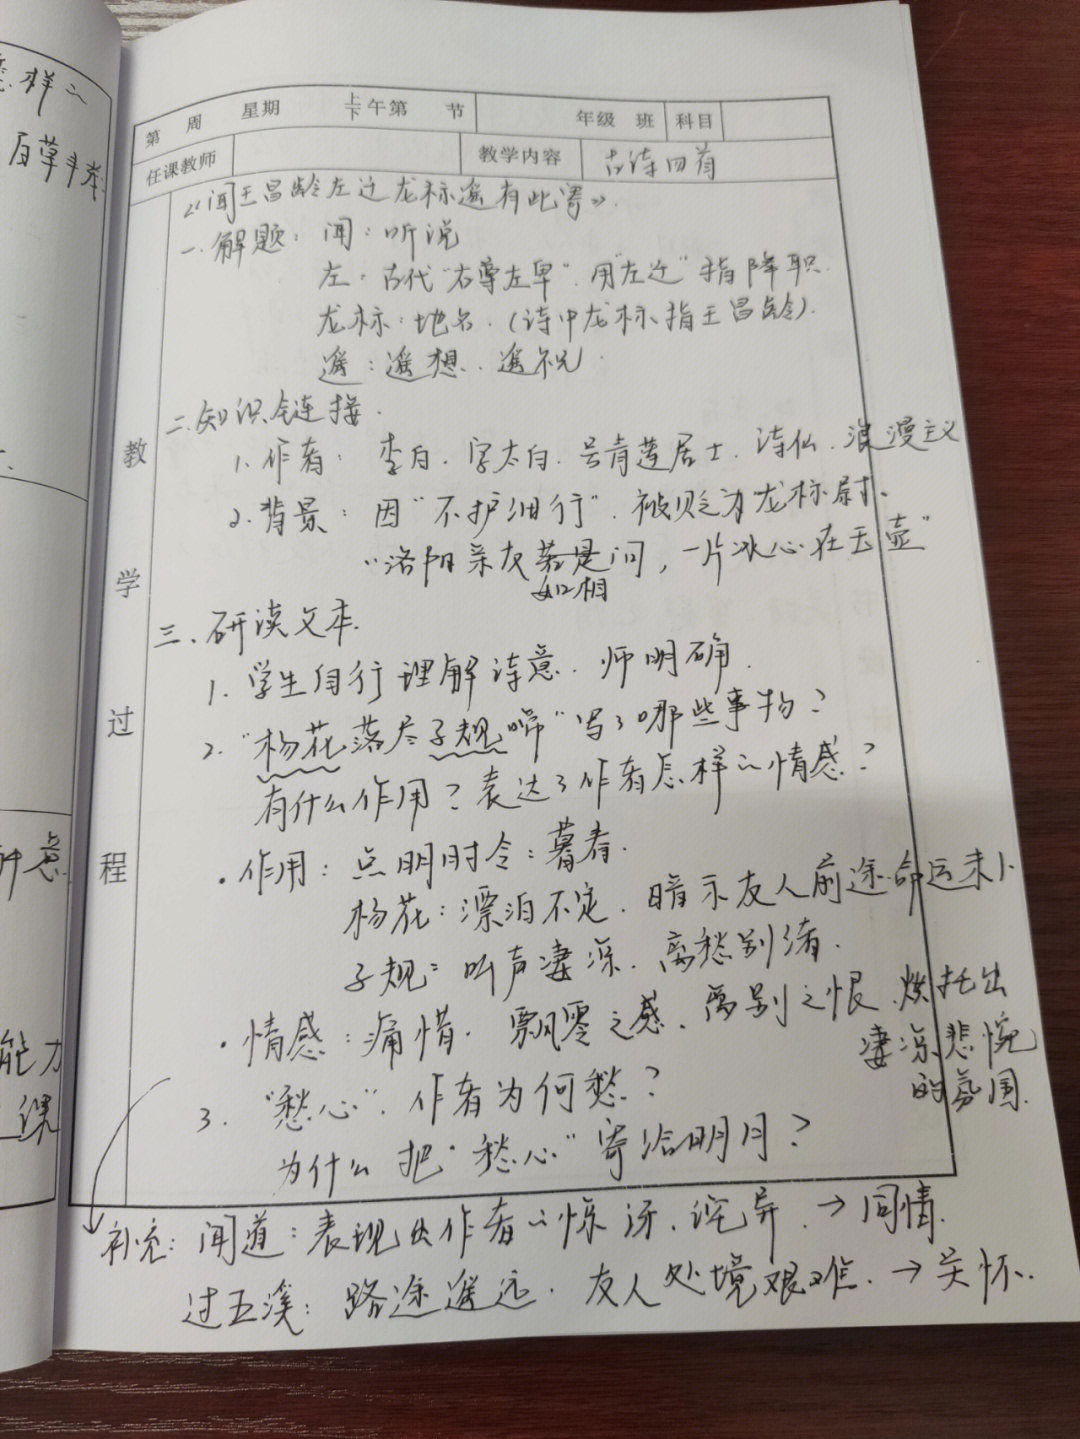 怎样
后草
种意
能力
课
第 周 星期 上下午第 节 年级 班 科目
任课教师 教学内容 古诗四首
教学过程
《闻王昌龄左迁龙标遥有此寄》.
一.解题: 闻:听说
左:古代“右尊左卑”.用“左迁”指降职.
龙标:地名.(诗中龙标指王昌龄).
遥:遥想.遥祝.
二.知识链接.
1.作者: 李白.字太白.号青莲居士.诗仙.浪漫主义
2.背景: 因“不护细行”.被贬为龙标尉.
“洛阳亲友若是问,一片冰心在玉壶”
如相
三.研读文本.
1.学生自行理解诗意.师明确.
2.“杨花落尽子规啼”写了哪些事物?
有什么作用?表达了作者怎样的情感?
·作用:点明时令:暮春.
杨花:漂泊不定.暗示友人前途命运未卜
子规:叫声凄凉.离愁别绪.
·情感:痛惜.飘零之感.离别之恨.烘托出
凄凉悲惋
的氛围.
3.“愁心”.作者为何愁?
为什么把“愁心”寄给明月?
补充:闻道:表现出作者的惊讶.诧异.→同情.
过五溪:路途遥远.友人处境艰难.→关怀.